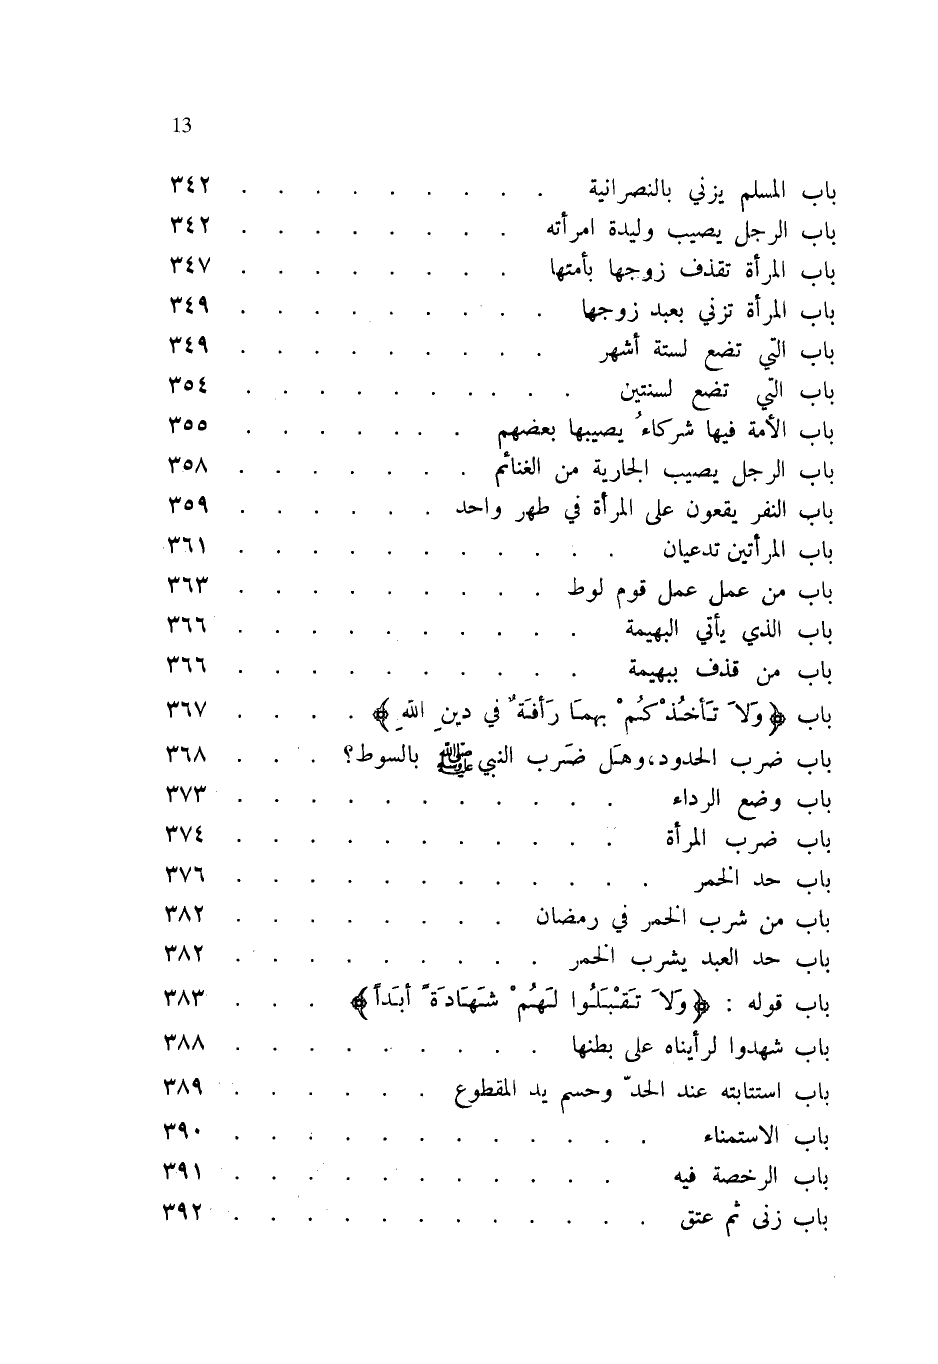 13
باب المسلم يزني بالنصرانية . . . . . . . . . ٣٤٢
باب الرجل يصيب وليدة امرأته . . . . . . . . ٣٤٢
باب المرأة تقذف زوجها بأمتها . . . . . . . . ٣٤٧
باب المرأة تزني بعبد زوجها . . . . . . . . . ٣٤٩
باب التي تضع لستة أشهر . . . . . . . . . ٣٤٩
باب التي تضع لسنتين . . . . . . . . . . ٣٥٤
باب الأمة فيها شركاءُ يصيبها بعضهم . . . . . . . ٣٥٥
باب الرجل يصيب الجارية من الغنائم . . . . . . . ٣٥٨
باب النفر يقعون على المرأة في طهر واحد . . . . . . ٣٥٩
باب المرأتين تدعيان . . . . . . . . . . . ٣٦١
باب من عمل عمل قوم لوط . . . . . . . . . ٣٦٣
باب الذي يأتي البهيمة . . . . . . . . . . ٣٦٦
باب من قذف ببهيمة . . . . . . . . . . ٣٦٦
باب ﴿وَلاَ تَأخُذْكُم بِهِمَا رَأفَةٌ في دينِ اللهِ﴾ . . . . ٣٦٧
باب ضرب الحدود،وهل ضَرب النبي ﷺ بالسوط؟ . . . ٣٦٨
باب وضع الرداء . . . . . . . . . . . ٣٧٣
باب ضرب المرأة . . . . . . . . . . . ٣٧٤
باب حد الخمر . . . . . . . . . . . . ٣٧٦
باب من شرب الخمر في رمضان . . . . . . . . ٣٨٢
باب حد العبد يشرب الخمر . . . . . . . . . ٣٨٢
باب قوله : ﴿وَلاَ تَقْبَلُوا لَهُمْ شَهَادَةً أبَداً﴾ . . . ٣٨٣
باب شهدوا لرأيناه على بطنها . . . . . . . . . ٣٨٨
باب استتابته عند الحدّ وحسم يد المقطوع . . . . . . ٣٨٩
باب الاستمناء . . . . . . . . . . . . ٣٩٠
باب الرخصة فيه . . . . . . . . . . . ٣٩١
باب زنى ثم عتق . . . . . . . . . . . . ٣٩٢